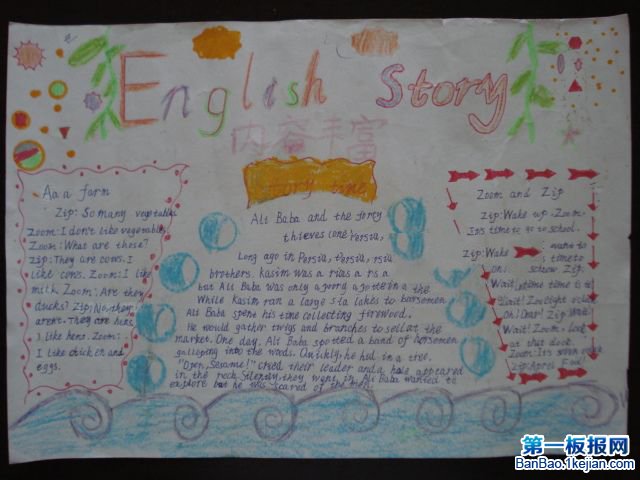 English Story
内容丰富
Story time
Aa a farm
Zip: So many vegetables
Zoom: I don't like vegetables
Zoom: What are those?
Zip: They are cows. I
like cows. Zoom: I like
milk Zoom: Are they
ducks? Zip: No, they
aren't. They are hens
I like hens. Zoom:
I like chicken and
eggs.
Ali Baba and the forty
thieves (one Persia,
Long ago in Persia, Persia,
brothers. kasim was a
but Ali Baba was only a poory
While kasim ran a large sta lakes to
Ali Baba spene his time collecting firewood.
He would gather twigs and branches to sell at the
market. One day, Ali Baba spotted a band of horsemen
galloping into the woods. Quickly, he hid in a tree.
"Open, Sesame!" cried their leader and a hole appeared
in the rock Silently, they went in Ali Baba wanted to
explore but he was scared of the men.
Zoom and Zip
Zip: Wake up. Zoom.
It's time to go to school.
Zip: Wake want to
time to
school Zip.
Wait time time is it
Wait! Zo eight o'clock
Oh! Dear! Zip Wait
Wait! Zoom. Look
at that clock.
Zoom: It's seven
Zip: April Fool
第一板报网
BanBao.1kejian.com